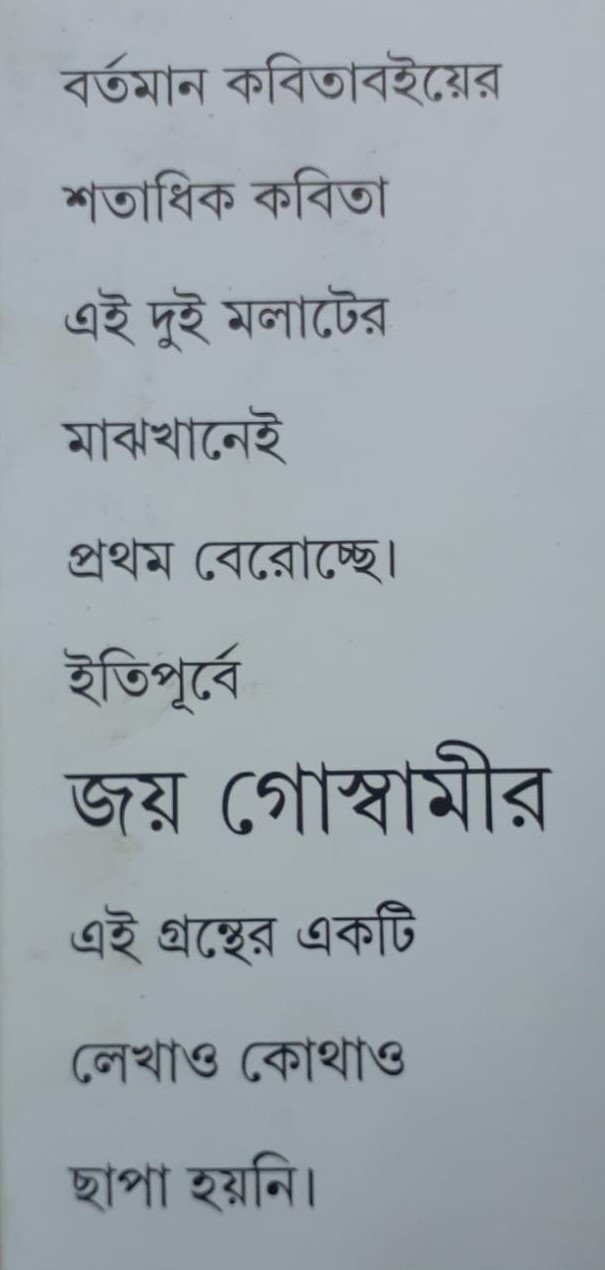 বর্তমান কবিতাবইয়ের
শতাধিক কবিতা
এই দুই মলাটের
মাঝখানেই
প্রথম বেরোচ্ছে।
ইতিপূর্বে
জয় গোস্বামীর
এই গ্রন্থের একটি
লেখাও কোথাও
ছাপা হয়নি।